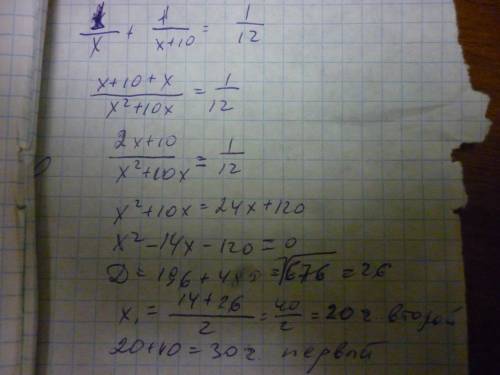 1/x + 1/(x+10) = 1/12
(x+10+x)/(x²+10x) = 1/12
(2x+10)/(x²+10x) = 1/12
x²+10x=24x+120
x²-14x-120=0
D=196+480=√676=26
x₁=(14+26)/2=40/2=20ч. второй
20+10=30ч. первый